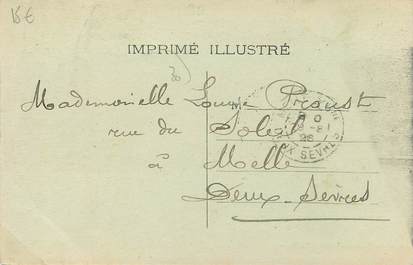 15€
IMPRIMÉ ILLUSTRÉ
Mademoiselle Louise Proust
rue du Soleil
à Melle
Deux-Sèvres